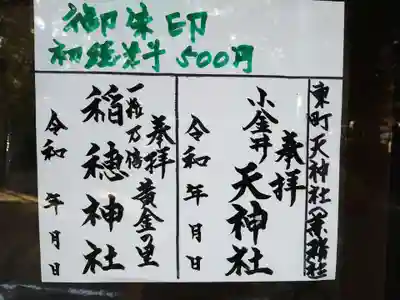 御朱印
初穂料 500円
東町天神社の兼務社
奉拝
小金井 天神社
令和 年 月 日
奉拝
一粒万倍 黄金の里
稲穂神社
令和 年 月 日